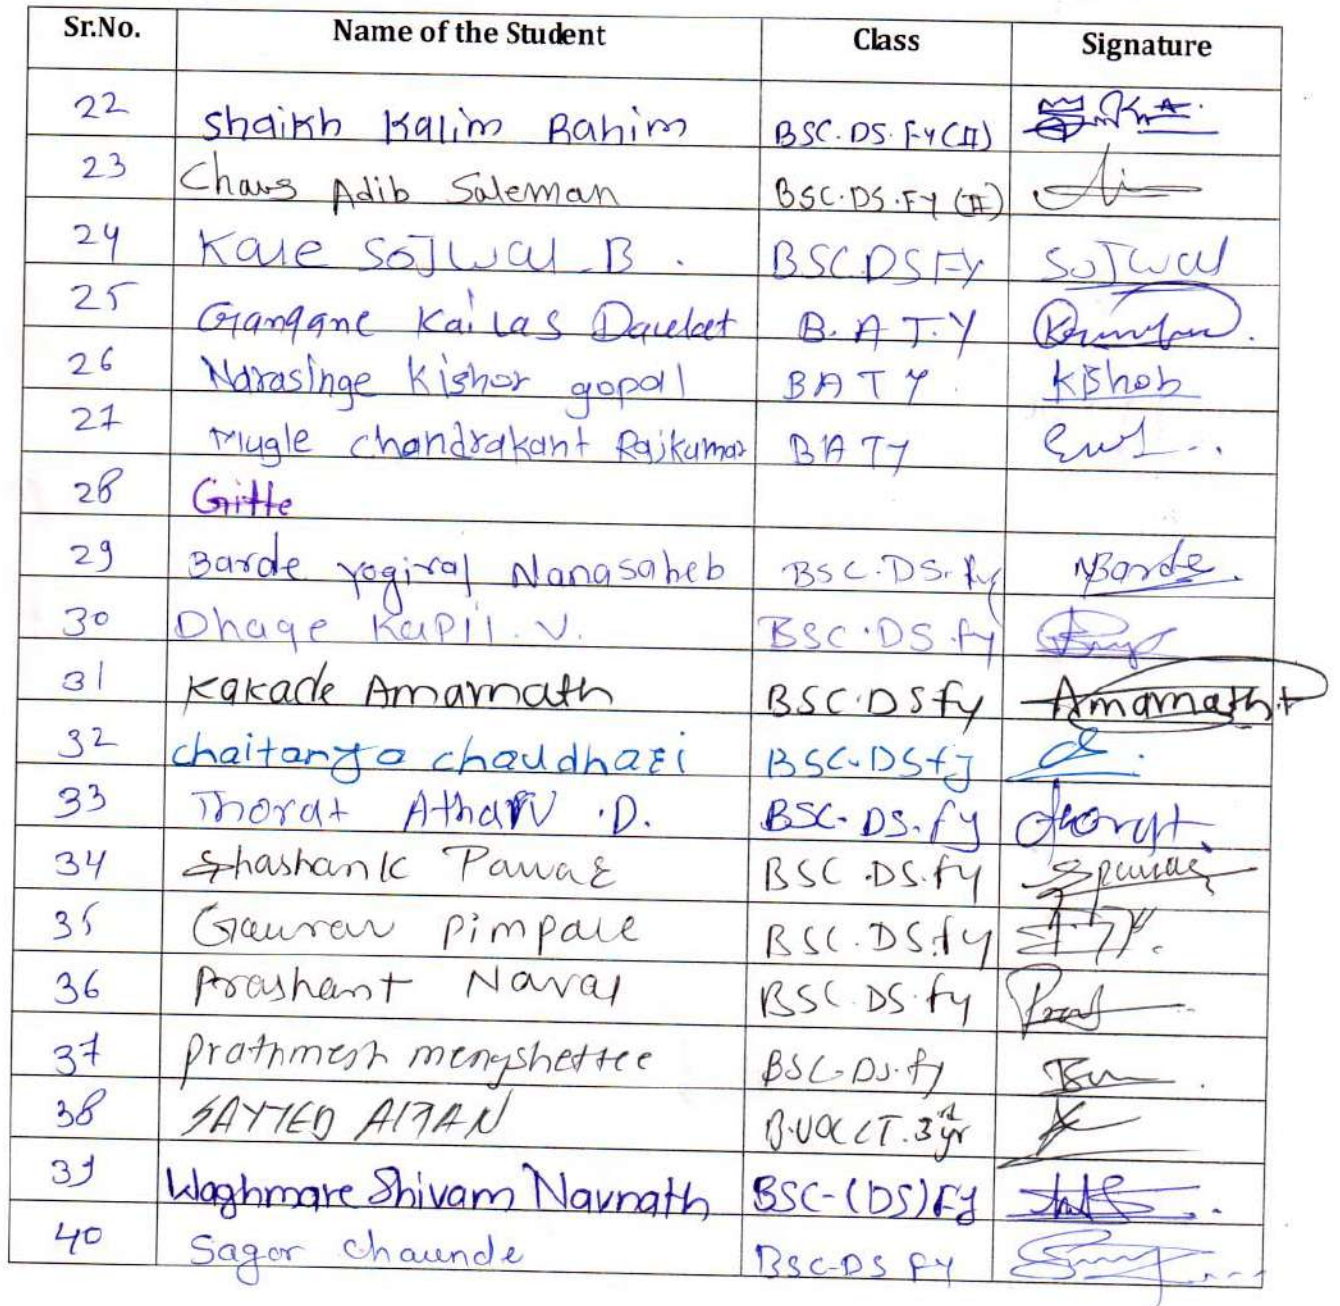 Sr.No. Name of the Student Class Signature
22 Shaikh Kalim Rahim BSC.DS.FY(II)
23 Chaus Adib Saleman BSC.DS.FY(II)
24 Kale SoJwal B. BSC.DSFY SoJwal
25 Gangane Kailas Daulat B.A T.Y
26 Narasinge Kishor gopal BA TY Kishob
27 Mugle Chandrakant Rajkumar BA TY
28 Gitte
29 Barde Yogiraj Nanasaheb BSC.DS.fy NBarde
30 Dhage Kapil.V. BSC.DS.fy
31 Kakade Amarnath BSC.DSfy Amarnath
32 chaitanya chaudhari BSC.DSfy
33 Thorat Atharv .D. BSC.DS.fy Thorat
34 Shashank Pawar BSC.DS.fy Spawar
35 Gaurav Pimpale BSC.DS.fy
36 Prashant Naval BSC.DS.fy
37 Prathmesh mengshettee BSC-DS.fy
38 SAYYED B.VOC CT.3rd yr
39 Waghmare Shivam Navnath BSC-(DS)FY
40 Sagar chaunde BSC-DS FY